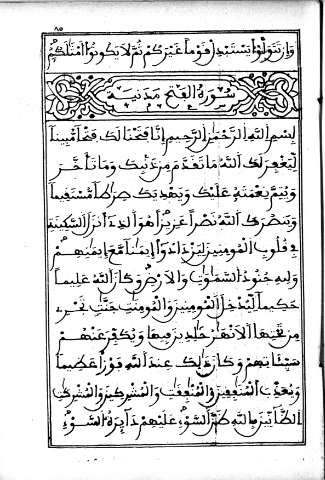 ٨٥
وإن تتولوا يستبدل قوما غيركم ثم لا يكونوا أمثالكم
سورة الفتح مدنية
بسم الله الرحمن الرحيم إنا فتحنا لك فتحا مبينا
ليغفر لك الله ما تقدم من ذنبك وما تأخر
ويتم نعمته عليك ويهديك صراطا مستقيما
وينصرك الله نصرا عزيزا هو الذي أنزل السكينة
في قلوب المومنين ليزدادوا إيمانا مع إيمانهم
ولله جنود السماوات والأرض وكان الله عليما
حكيما ليدخل المومنين والمومنات جنات تجري
من تحتها الأنهار خالدين فيها ويكفر عنهم
سيئاتهم وكان ذلك عند الله فوزا عظيما
ويعذب المنافقين والمنافقات والمشركين والمشركات
الظانين بالله ظن السوء عليهم دائرة السوء